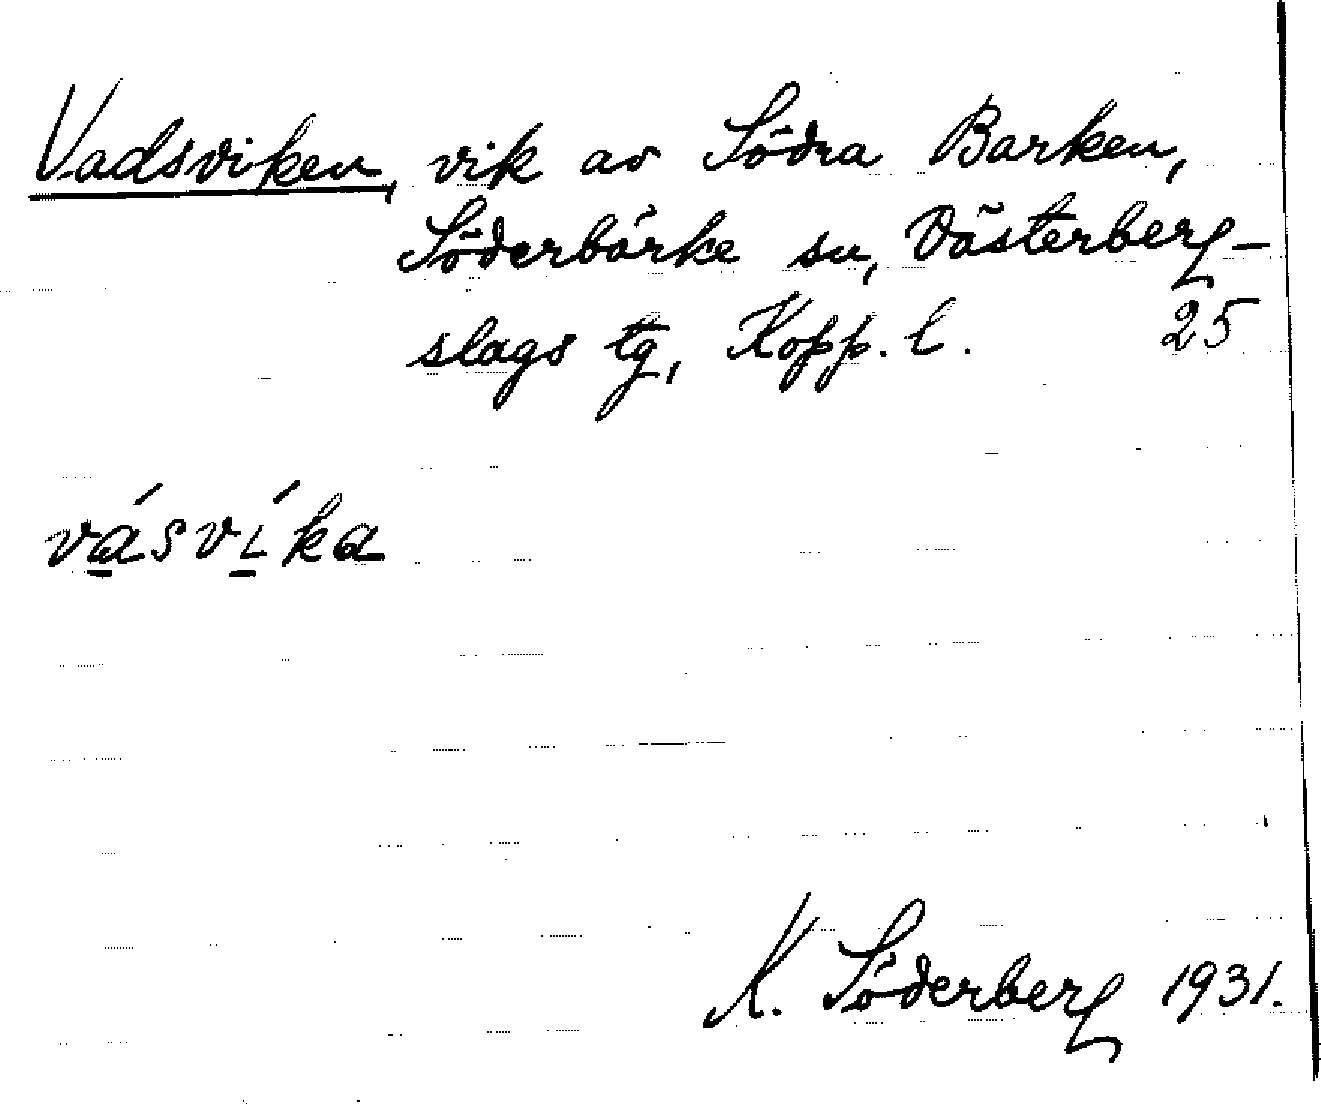 Vadsviken, vik av Södra Barken,
Söderbärke sn, Västerberg-
slags tg, Kopp. l. 25
vásvíka
K. Söderberg 1931.